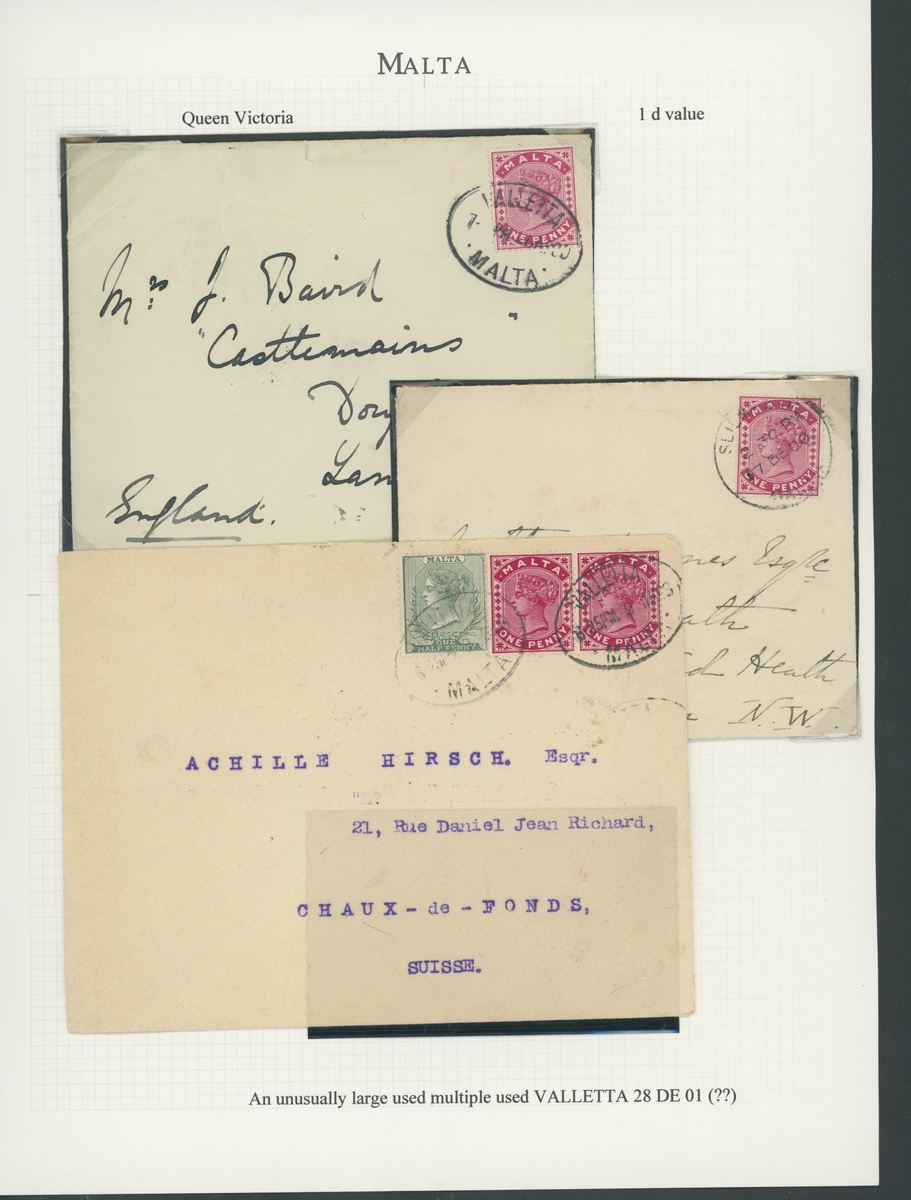 MALTA
Queen Victoria
1 d value
MALTA
ONE PENNY
VALLETTA
7- PM
MALTA
Mrs J. Baird
"Castlemains
England.
MALTA
ONE PENNY
17 DE
nes Esqre
d Heath
N.W.
MALTA
ONE
HALF PENNY
MALTA
MALTA
ONE PENNY
MALTA
ONE PENNY
VALLETTA
MALTA
ACHILLE HIRSCH. Esqr.
21, Rue Daniel Jean Richard,
CHAUX-de-FONDS,
SUISSE.
An unusually large used multiple used VALLETTA 28 DE 01 (??)